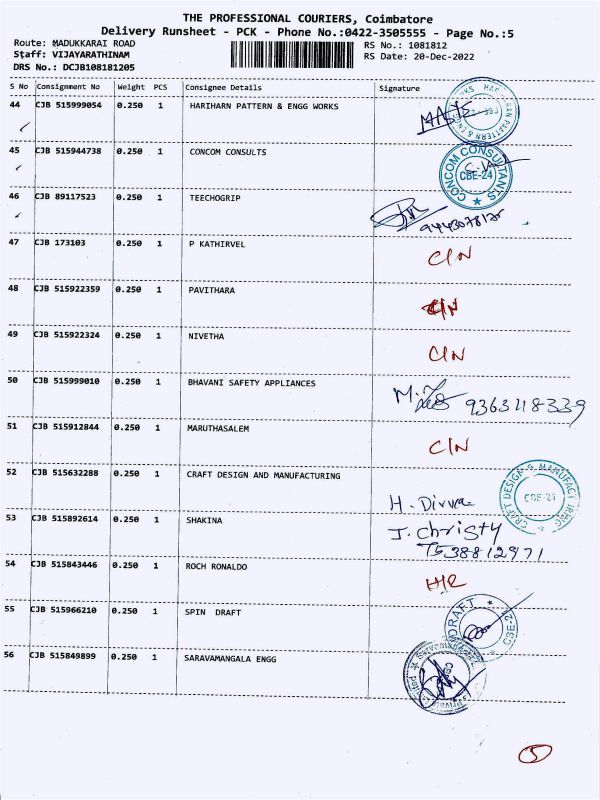 THE PROFESSIONAL COURIERS, Coimbatore
Delivery Runsheet - PCK - Phone No.:0422-3505555 - Page No.:5
Route: MADUKKARAI ROAD
RS No.: 1081812
Staff: VIJAYARATHINAM
RS Date: 20-Dec-2022
DRS No.: DCJB108181205
S No Consignment No Weight PCS Consignee Details Signature
44 CJB 515999054 0.250 1 HARIHARN PATTERN & ENGG WORKS
45 CJB 515944738 0.250 1 CONCOM CONSULTS
CONCOM CONSULTANTS
CBE-24
46 CJB 89117523 0.250 1 TEECHOGRIP
47 CJB 173103 0.250 1 P KATHIRVEL C/N
48 CJB 515922359 0.250 1 PAVITHARA C/N
49 CJB 515922324 0.250 1 NIVETHA C/N
50 CJB 515999010 0.250 1 BHAVANI SAFETY APPLIANCES
51 CJB 515912844 0.250 1 MARUTHASALEM C/N
52 CJB 515632288 0.250 1 CRAFT DESIGN AND MANUFACTURING
CRAFT DESIGN & MANUFACTURING
CBE-21
H. Divya
53 CJB 515892614 0.250 1 SHAKINA J. Christy
7538812971
54 CJB 515843446 0.250 1 ROCH RONALDO
55 CJB 515966210 0.250 1 SPIN DRAFT
56 CJB 515849899 0.250 1 SARAVAMANGALA ENGG
5